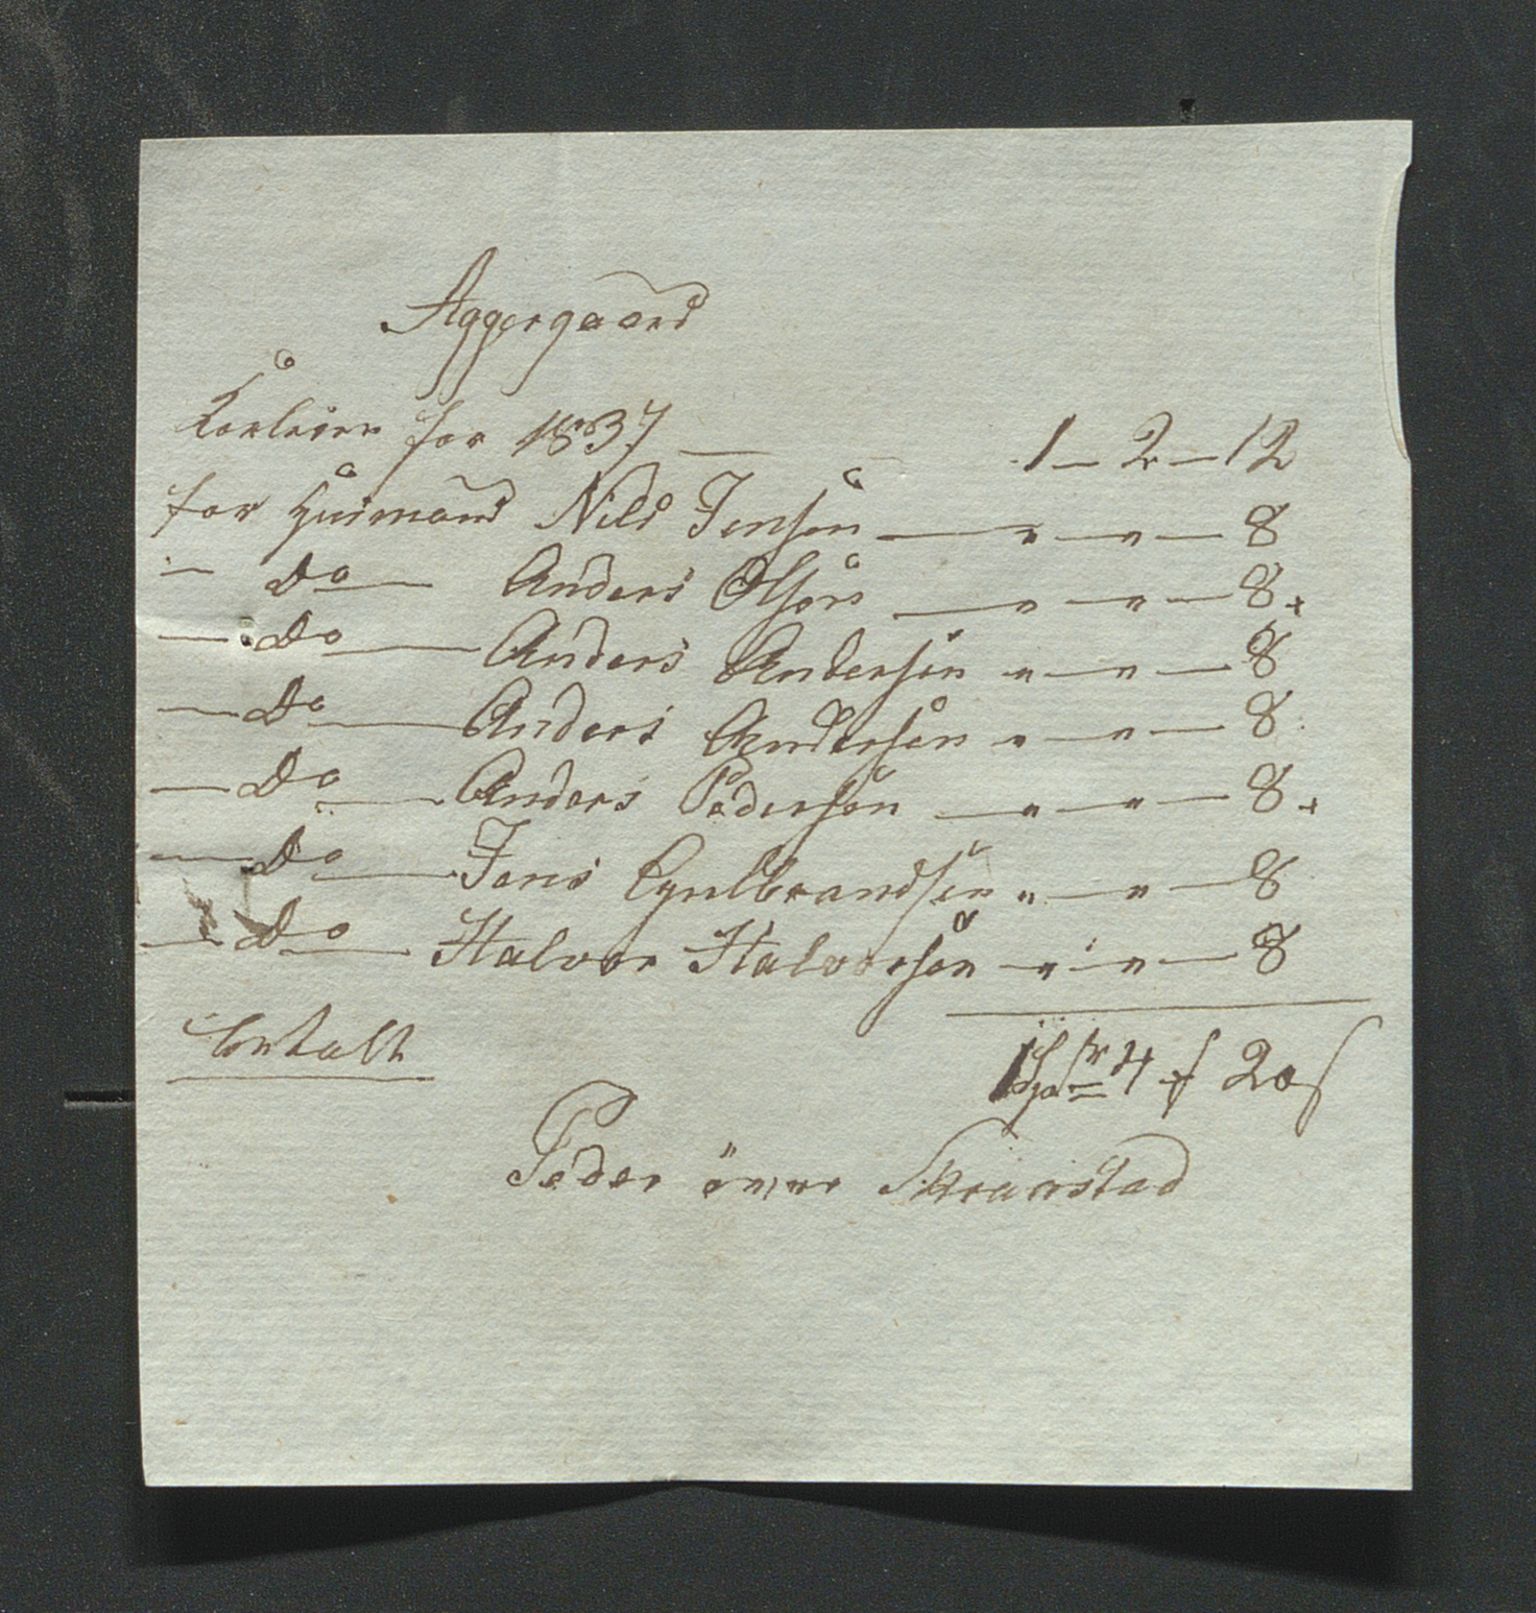 Aggergaard
for 1837 — 1 — 2 — 12
for Huusmand Nils Jensøn — " — " — 8
— Do — Anders Olsøn — " — " — 8 +
— Do — Anders Andersøn " — " — 8
— Do — Anders Andersøn " — " — 8
— Do — Anders Pedersøn — " — " — 8 +
— Do — Jens Engelbrandsen " — " — 8
— Do — Halvor Halvorsøn — " — " — 8
betalt
1 Spdr 4 20
Peder övre Skraastad